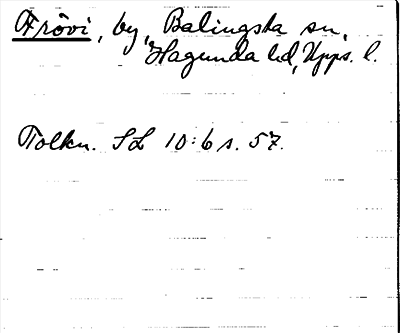 Frövi, by, Balingsta sn,
Hagunda hd, Upps. l.
Tolkn. SL 10:6 s. 57.